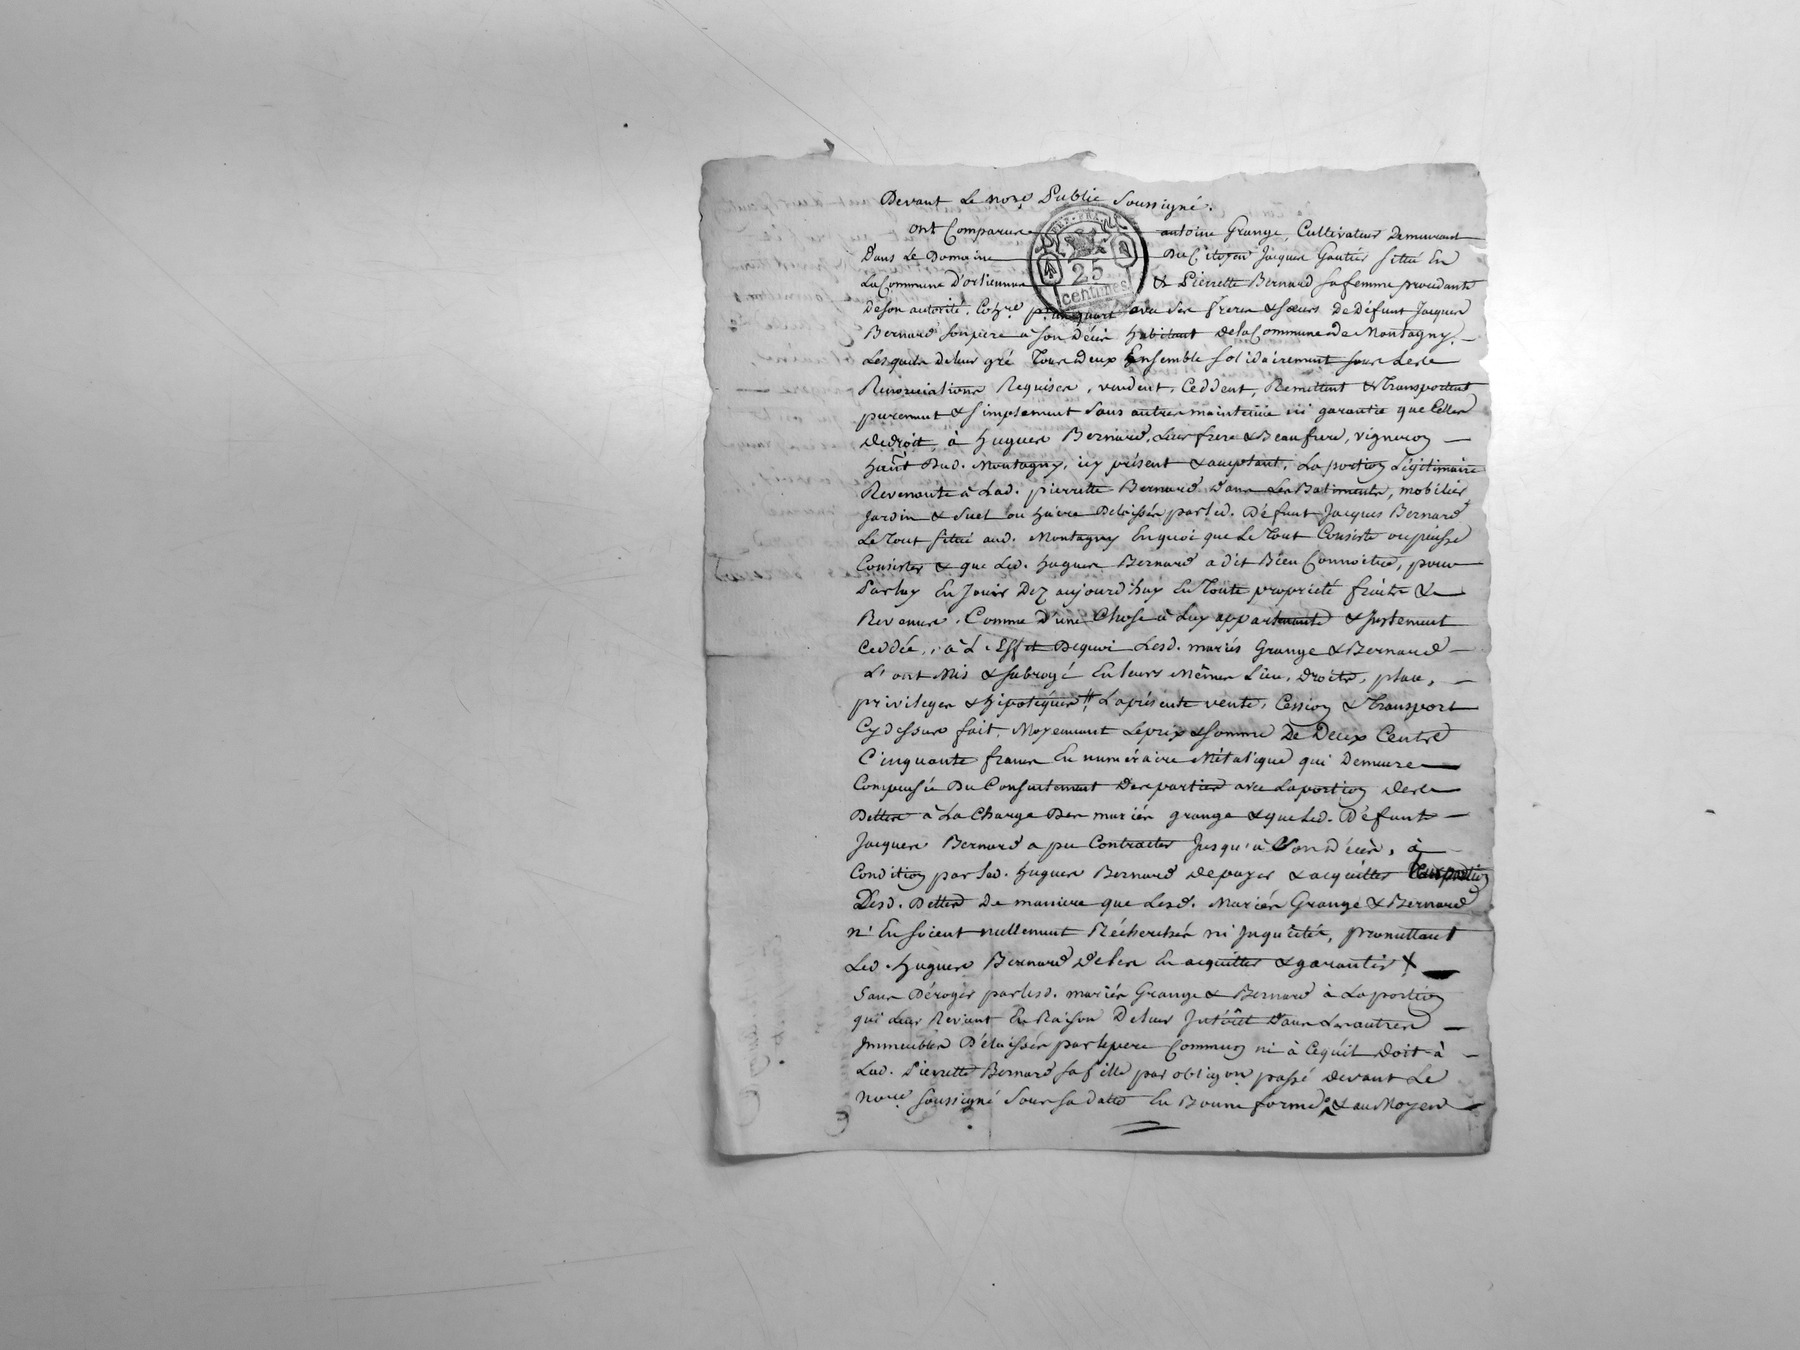 Devant Le nore Public Soussigné.
ont Comparus antoine Grange, Cultivateur Demeurant
Dans Le Domaine Du Citoyen Jacques Gautier situé En
La Commune D'orliennas & Pierrette Bernard sa femme procédante
REP. FRA.
25
centimes
De son autorité, avec ses freres & sœurs De Défunt Jacques
Bernard son pere à son Décès habitant de la Commune de Montagny.
Lesquels de leur gré Tous Deux Ensemble solidairement sous Les
Renonciations Requises, vendent, Ceddent, Remettent & Transportent
purement & simplement sans autre maintenüe ni garantie que Celles
de droit, à hugues Bernard, Leur frere & Beaufrere, vigneron
habt. Aud. Montagny, icy présent & acceptant, La portion Légitimaire
Revenante à Lad. pierrette Bernard Dans Les Batiments, mobilier
Jardin & Suel ou haire Delaissés par led. Défunt Jacques Bernard
Le Tout situé aud. Montagny En quoi que Le Tout Consiste ou puisse
Consister & que Led. hugues Bernard a dit Bien Connoitre, pour
Par luy En Jouir Dez aujourd'huy En Toute propriété fruits &
Revenus, Comme d'une Chose à Luy appartenante & justement
Ceddée, à L'Effet Dequoi Lesd. mariés Grange & Bernard
L'ont Mis & subrogé En leurs Mêmes Lieu, Droits, place,
privileges & hipotéques La présente vente, Cession & Transport
Cy dessus fait, Moyennant Le prix & somme De Deux Cents
Cinquante francs En numéraire Métalique qui Demeure
Compensée Du Consentement Des parties avec La portion des
Dettes à La Charge Des mariés grange & que Led. Défunt
Jacques Bernard a pu Contracter Jusqu'à Son décès, à
Condition par Led. hugues Bernard de payer & acquitter Leur portion
Desd. Dettes De maniere que Lesd. Mariés Grange & Bernard
n'En soient nullement Récherchés ni Inquiétés, promettant
Led. hugues Bernard de les En acquitter & garantir X
Sans Déroger par lesd. mariés Grange & Bernard à La portion
qui Leur Revient En Raison De leur Intérêt Dans Les autres
Immeubles Délaissés par le pere Commun ni à Ce qu'il Doit à
Lad. Pierrette Bernard sa fille par obligon passé devant Le
nore soussigné sous sa Date En Bonne forme & au Moyen